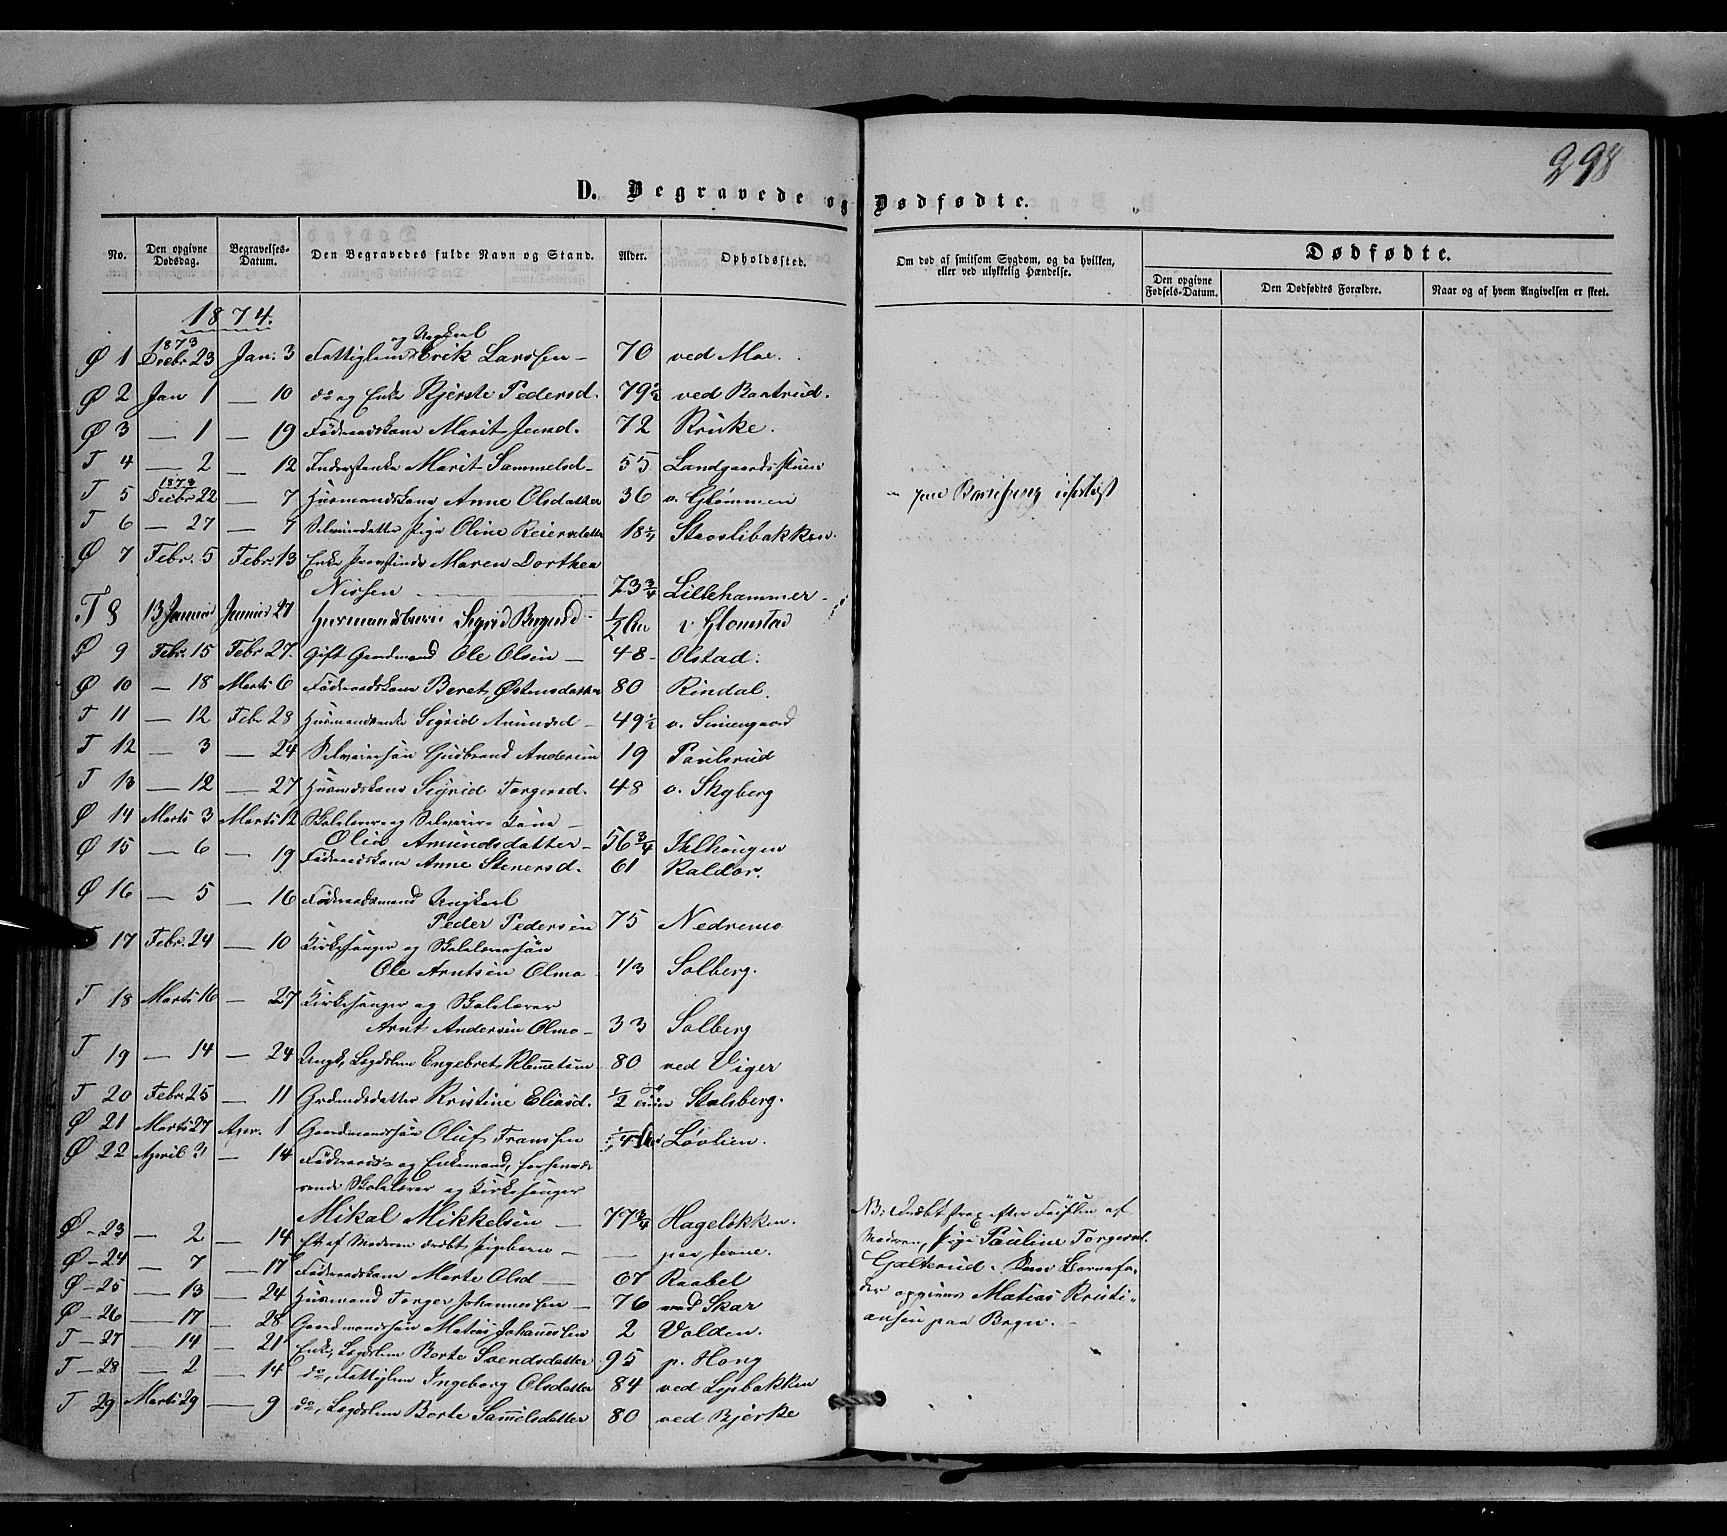 298
D. Begravede og Dødfødte.
No. Den opgivne Dødsdag. Begravelses-Datum. Den Begravedes fulde Navn og Stand. Alder. Opholdssted. Om død af smitsom Sygdom, og da hvilken, eller ved ulykkelig Hændelse. Dødfødte.
Den opgivne Fødsels-Datum. Den Dødfødtes Forældre. Naar og af hvem Angivelsen er skeet.
1874.
1873 og Ungkarl
Ø 1 Decbr 23 Jan. 3 Fattiglem Erik Larssen 70 ved Moe.
Ø 2 Jan 1 — 10 do og Enke Kjerste Pedersd. 79½ ved Baatrud.
Ø 3 — 1 — 19 Føderaadskone Marit 72 Kruke.
T 4 — 2 — 12 Inderstenke Marit Sammelsd 55 Landgaardsstuen
1873
T 5 Decbr 22 — 7 Husmandskone Anne Olsdatter 36 v. Glømmen
T 6 — 27 — 7 Selveierdatter Pige Oline Reiersdatter 18¼ Stavslibakken
Ø 7 Febr. 5 Febr. 13 Enke Maren Dorthea
Nissen 73¾ Lillehammer
T 8 13 Januar Januar 27 Sigrid ½ v Glomstad
Ø 9 Febr. 15 Febr 27. Gift Gaardmand Ole Olsen 48 Olstad.
Ø 10 — 18 Marts 6 Føderaadskone Beret Østensdatter 80 Rindal.
T 11 — 12 Feb. 28 Husmandsenke Sigrid Amundsd 49½ v. Simengaard
T 12 — 3 — 24 Selveiersøn Gudbrand Andersen 19 Paulsrud
T 13 — 12 — 27 Husmdskone Sigrid Torgersd. 48 v. Skyberg
Ø 14 Marts 3 Marts 12 Skolelærer og Selveiers Kone
Olia Amundsdatter 56¾ Ihlhaugen
Ø 15 — 6 — 19 Føderaadskone Anne Stenersd. 61 Kaldor.
Ø 16 — 5 — 16 Føderaadsmand Ungkarl
Peder Pedersen 75 Nedremo
T 17 Febr. 24 — 10 Kirkesanger og Skolelærersøn
Ole Arntsen Olmo 1/3 Solberg.
T 18 Marts 16 — 27 Kirkesanger og Skolelærer
Arnt Andersen Olmo 33 Solberg
T 19 — 14 — 24 Ungk. Lægdslem Engebret Klemetsen 80 ved Viger
T 20 Febr 25 — 11 Grdmdsdatter Kristine Eliasd. ½ Stalsberg.
Ø 21 Marts 27 Apr. 1 Gaardmandssøn Oluf Franssen ¼ Løvlien.
Ø 22 April 3 — 14 Føderaads- og Enkemand, forhenvæ-
rende Skolelærer og Kirkesanger
Mikal Mikkelsen 77¾ Hageløkken.
Ø 23 — 2 — 14 Et af Moderen dræbt Pigebarn — paa Jevne.
Ø 24 — 7 — 17 Føderaadskone Marte Olsd 67 Raabel
Ø 25 — 13 — 24 Husmand Torger Johannessen 76 ved Skar
Ø 26 — 17 — 28 Gaardmandssøn Matias Johannessen 2 Volden.
T 27 — 14 — 21 Enke, Lægdslem Berte Svendsdatter 95 p. Hong
T 28 — 2 — 14 do, Fattiglem Ingeborg Olsdatter 84 ved Lysbakken
T 29 Marts 29 — 9 do, Lægdslem Berte Samelsdatter 80 ved Bjerke
NB: Dræbt strax efter Fødslen af
Moderen, Pige Pauline Torgersd.
Galterud. Som Barnefa-
der opgives Matias Kristi-
ansen paa